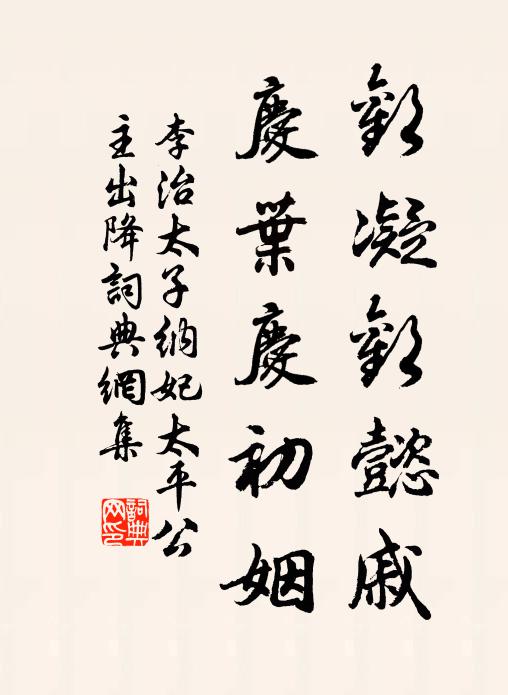 歡凝歡懿戚
慶葉慶初姻
李治太子納妃太平公
主出降詞典網集
詞典网印